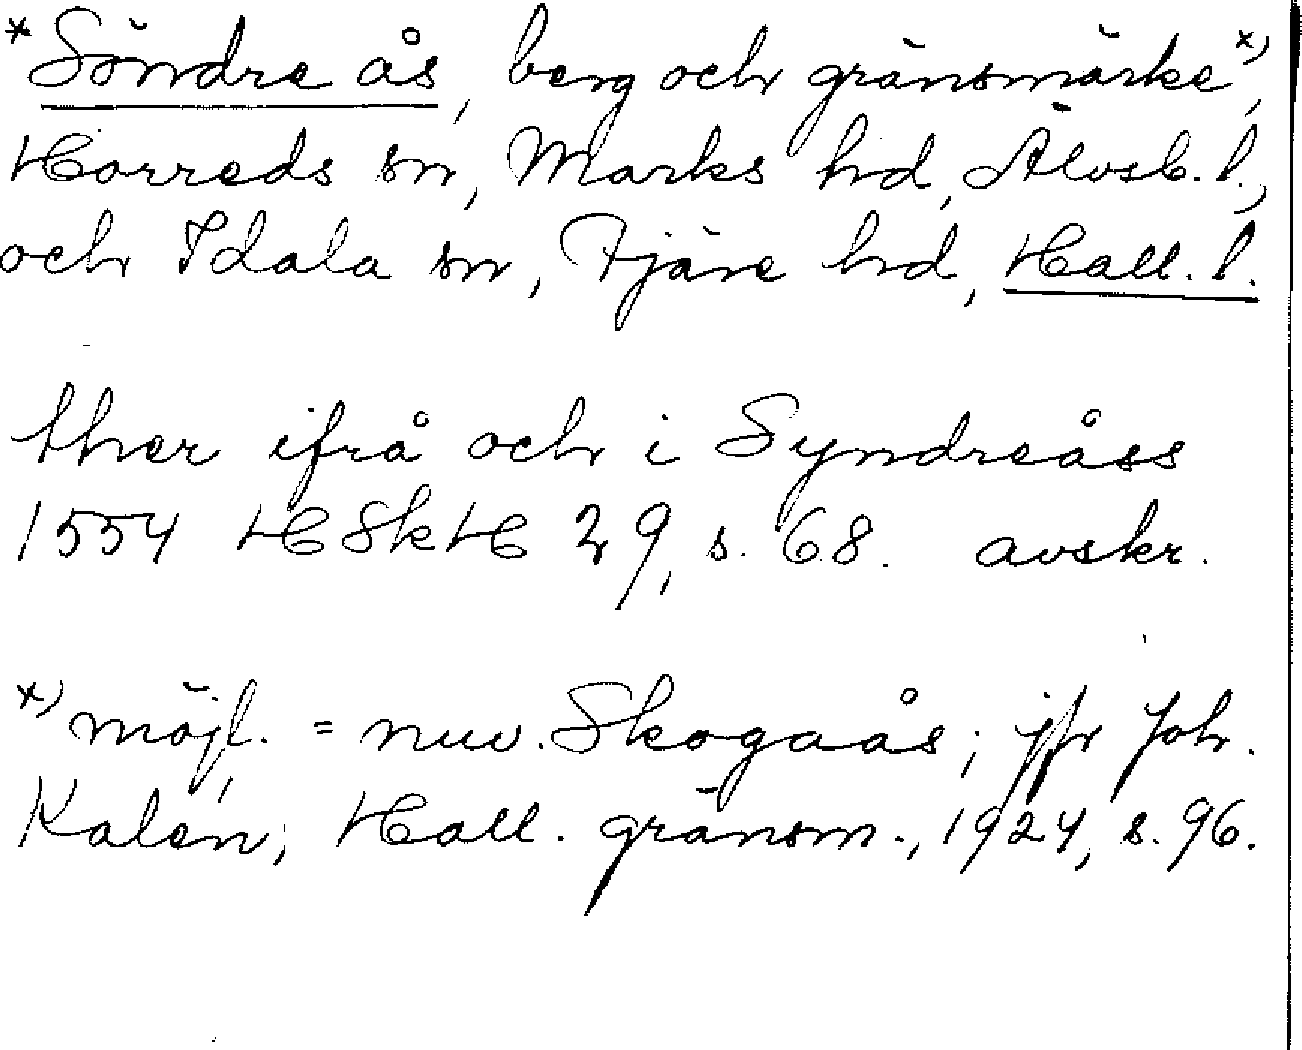 *Söndre ås, berg och gränsmärke x),
Horreds sn, Marks hd, Älvsb. l.,
och Idala sn, Fjäre hd, Hall. l.
ther ifrå och i Syndreåss
1554 HSkH 29, s. 68. avskr.
x) möjl. = nuv. Skogaås; jfr Joh.
Kalén, Hall. gränsm., 1924, s. 96.